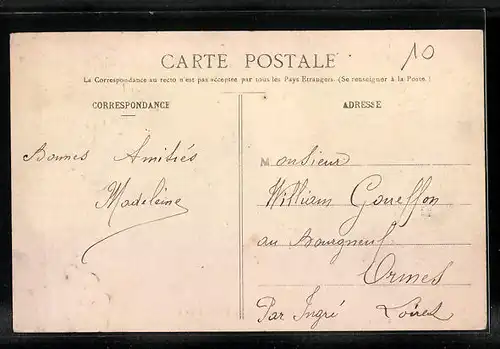 CARTE POSTALE
10
La Correspondance au recto n'est pas acceptée par tous les Pays Etrangers. (Se renseigner à la Poste.)
CORRESPONDANCE
Bonnes Amitiés
Madeleine
ADRESSE
Monsieur
William Goueffon
au Bourgneuf
Ormes
Par Ingré Loiret